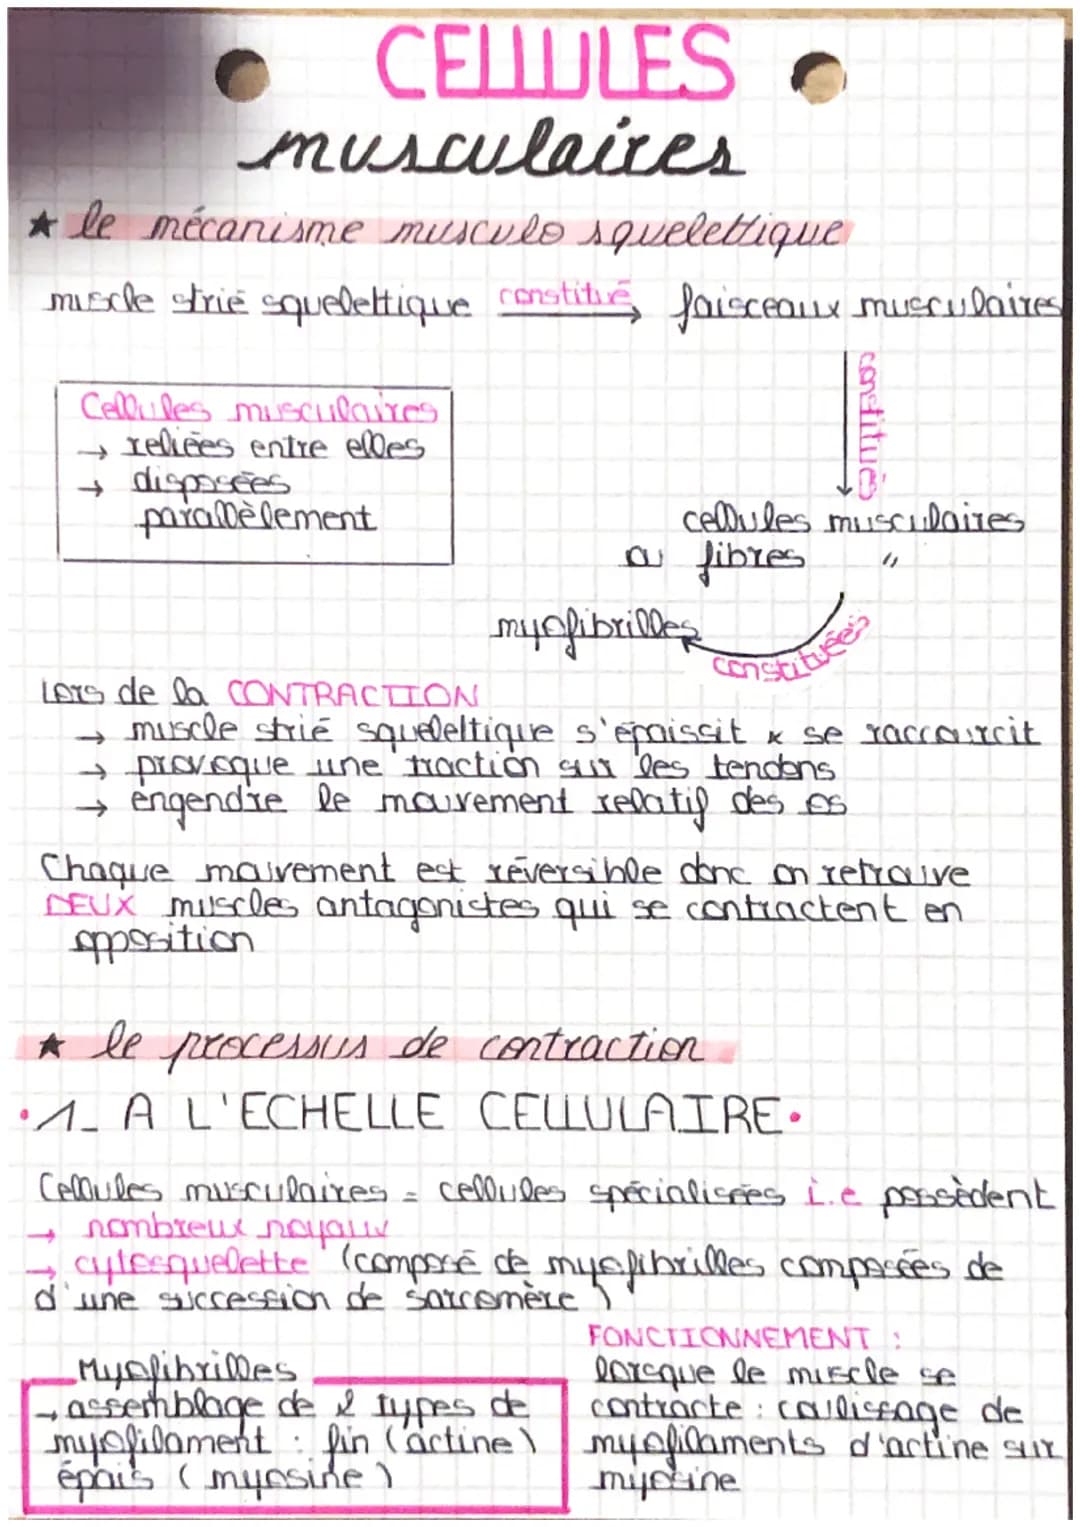 CELLULES
musculaires
★ le mécanisme musculo squelettique
muscle strié squelettique constitué → faisceaux musculaires
constitués
Cellules musculaires
→ reliées entre elles
→ disposées
parallèlement
cellules musculaires
ou fibres "
myofibrilles
constituées
Lors de la CONTRACTION
→ muscle strié squelettique s'épaissit & se raccourcit
→ provoque une traction sur les tendons
→ engendre le mouvement relatif des os
Chaque mouvement est réversible donc on retrouve
DEUX muscles antagonistes qui se contractent en
opposition
★ le processus de contraction
•1_ A L'ECHELLE CELLULAIRE•
Cellules musculaires = cellules spécialisées i.e possèdent
→ nombreux noyaux
→ cytosquelette (composé de myofibrilles composées de
d'une succession de sarcomère)
Myofibrilles
→ assemblage de 2 types de
myofilament : fin (actine)
épais (myosine)
FONCTIONNEMENT :
lorsque le muscle se
contracte : coulissage de
myofilaments d'actine sur
myosine